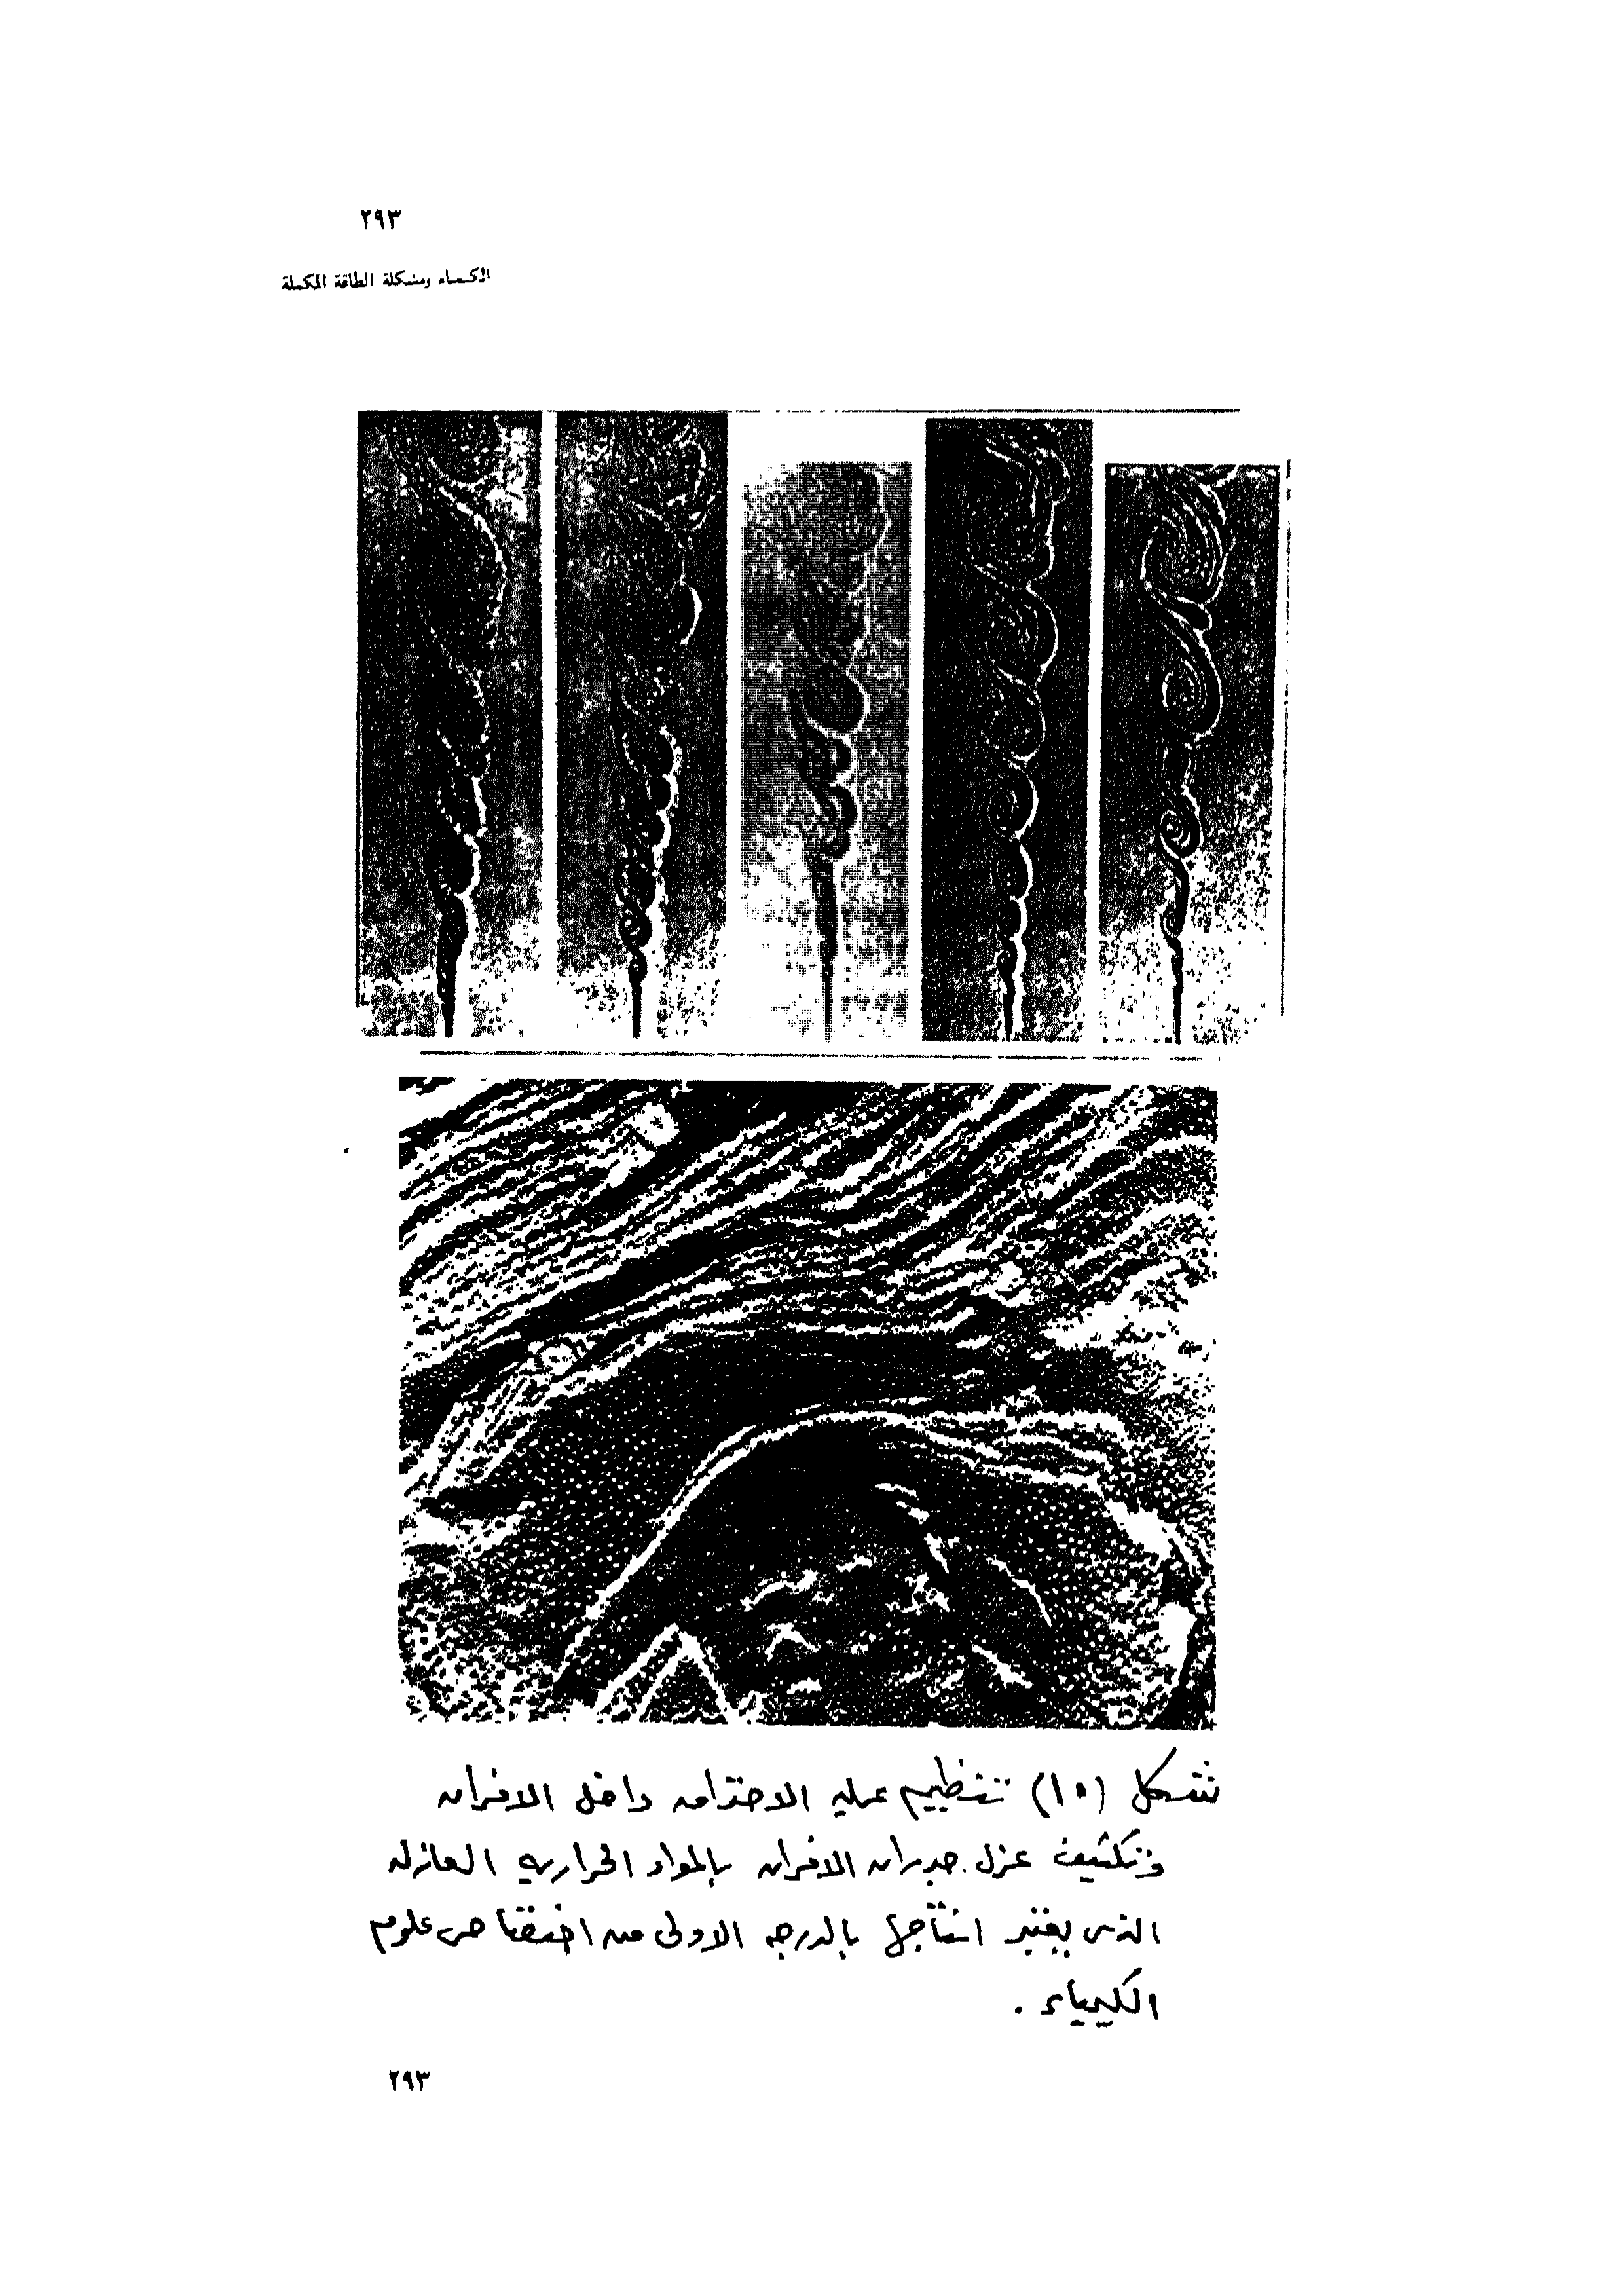 ٢٩٣
الكيمياء ومشكلة الطاقة المكملة
شكل (١٥) تنظيم عمليه الاحتراق داخل الافران
وتكثيف عزل جدران الافران بالمواد الحراريه العازله
الذى يعتبر انتاجها بالدرجه الاولى من اختصاص علوم
الكيمياء .
٢٩٣